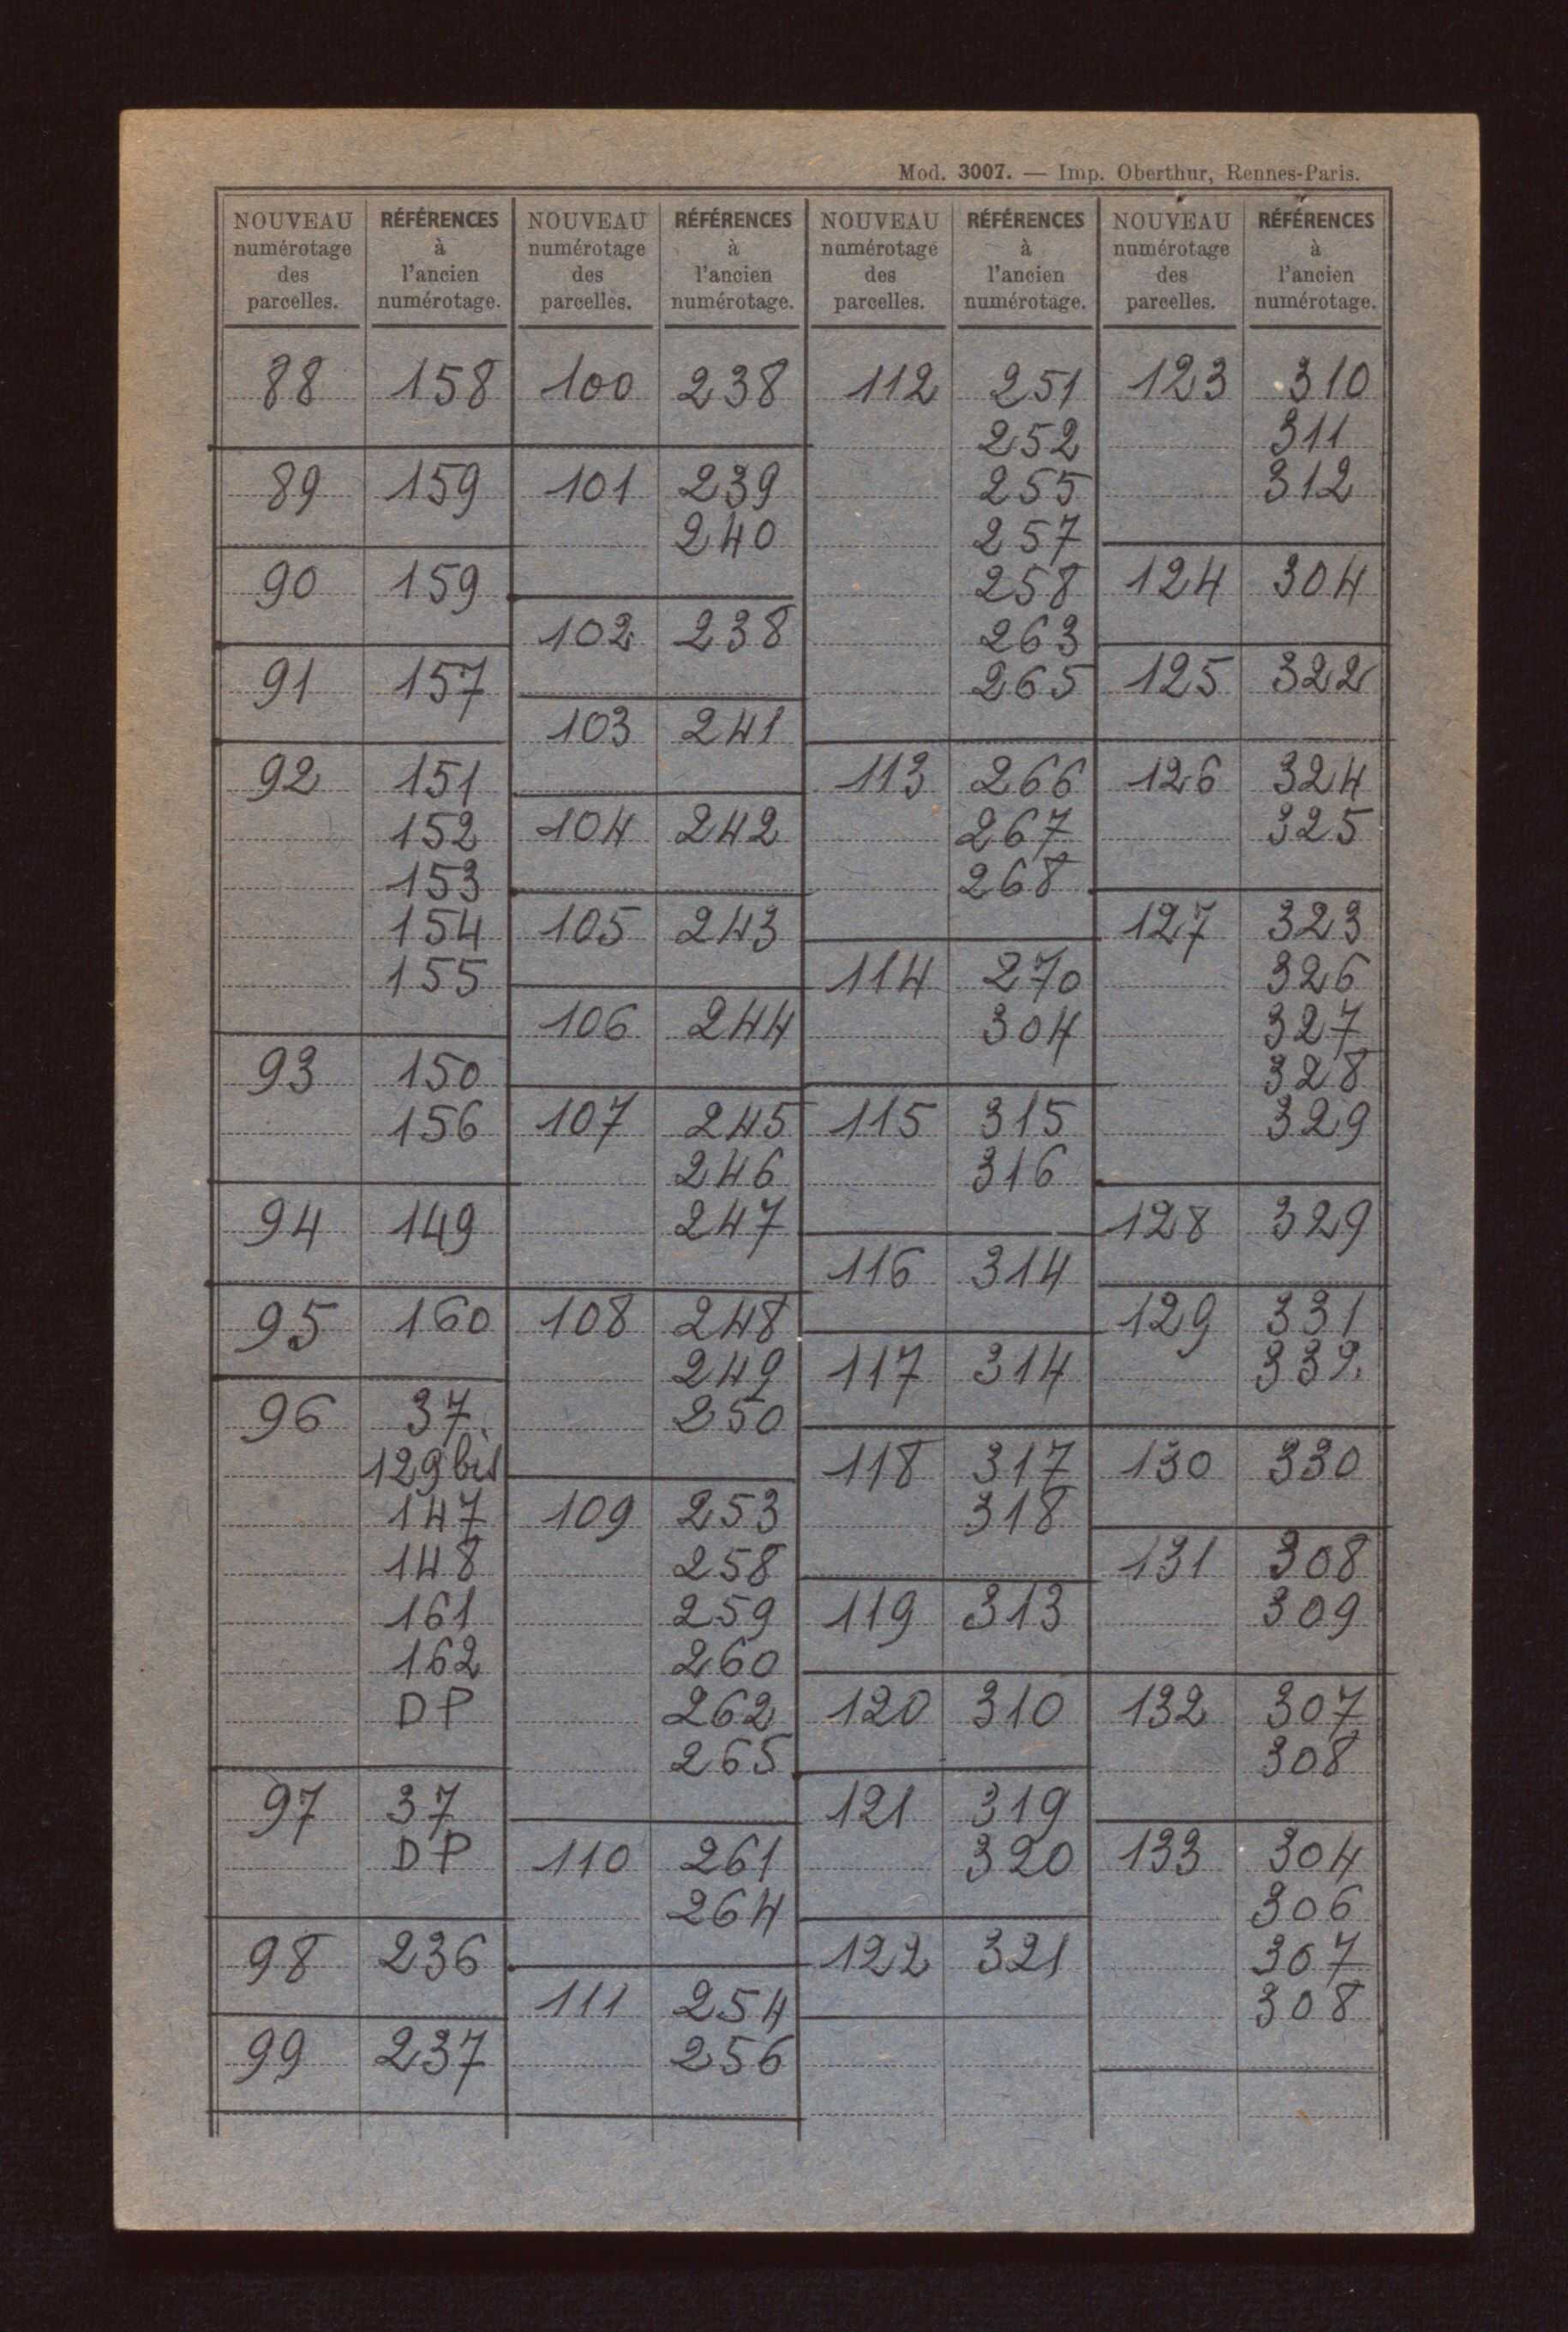 Mod. 3007. — Imp. Oberthur, Rennes-Paris.
NOUVEAU
numérotage
des
parcelles.
RÉFÉRENCES
à
l'ancien
numérotage.
88 158
89 159
90 159
91 157
92 151
152
153
154
155
93 150
156
94 149
95 160
96 37
129 bis
147
148
161
162
DP
97 37
DP
98 236
99 237
NOUVEAU
numérotage
des
parcelles.
RÉFÉRENCES
à
l'ancien
numérotage.
100 238
101 239
240
102 238
103 241
104 242
105 243
106 244
107 245
246
247
108 248
249
250
109 253
258
259
260
262
265
110 261
264
111 254
256
NOUVEAU
numérotage
des
parcelles.
RÉFÉRENCES
à
l'ancien
numérotage.
112 251
252
255
257
258
263
265
113 266
267
268
114 270
304
115 315
316
116 314
117 314
118 317
318
119 313
120 310
121 319
320
122 321
NOUVEAU
numérotage
des
parcelles.
RÉFÉRENCES
à
l'ancien
numérotage.
123 310
311
312
124 304
125 322
126 324
325
127 323
326
327
328
329
128 329
129 331
332
130 330
131 308
309
132 307
308
133 304
306
307
308